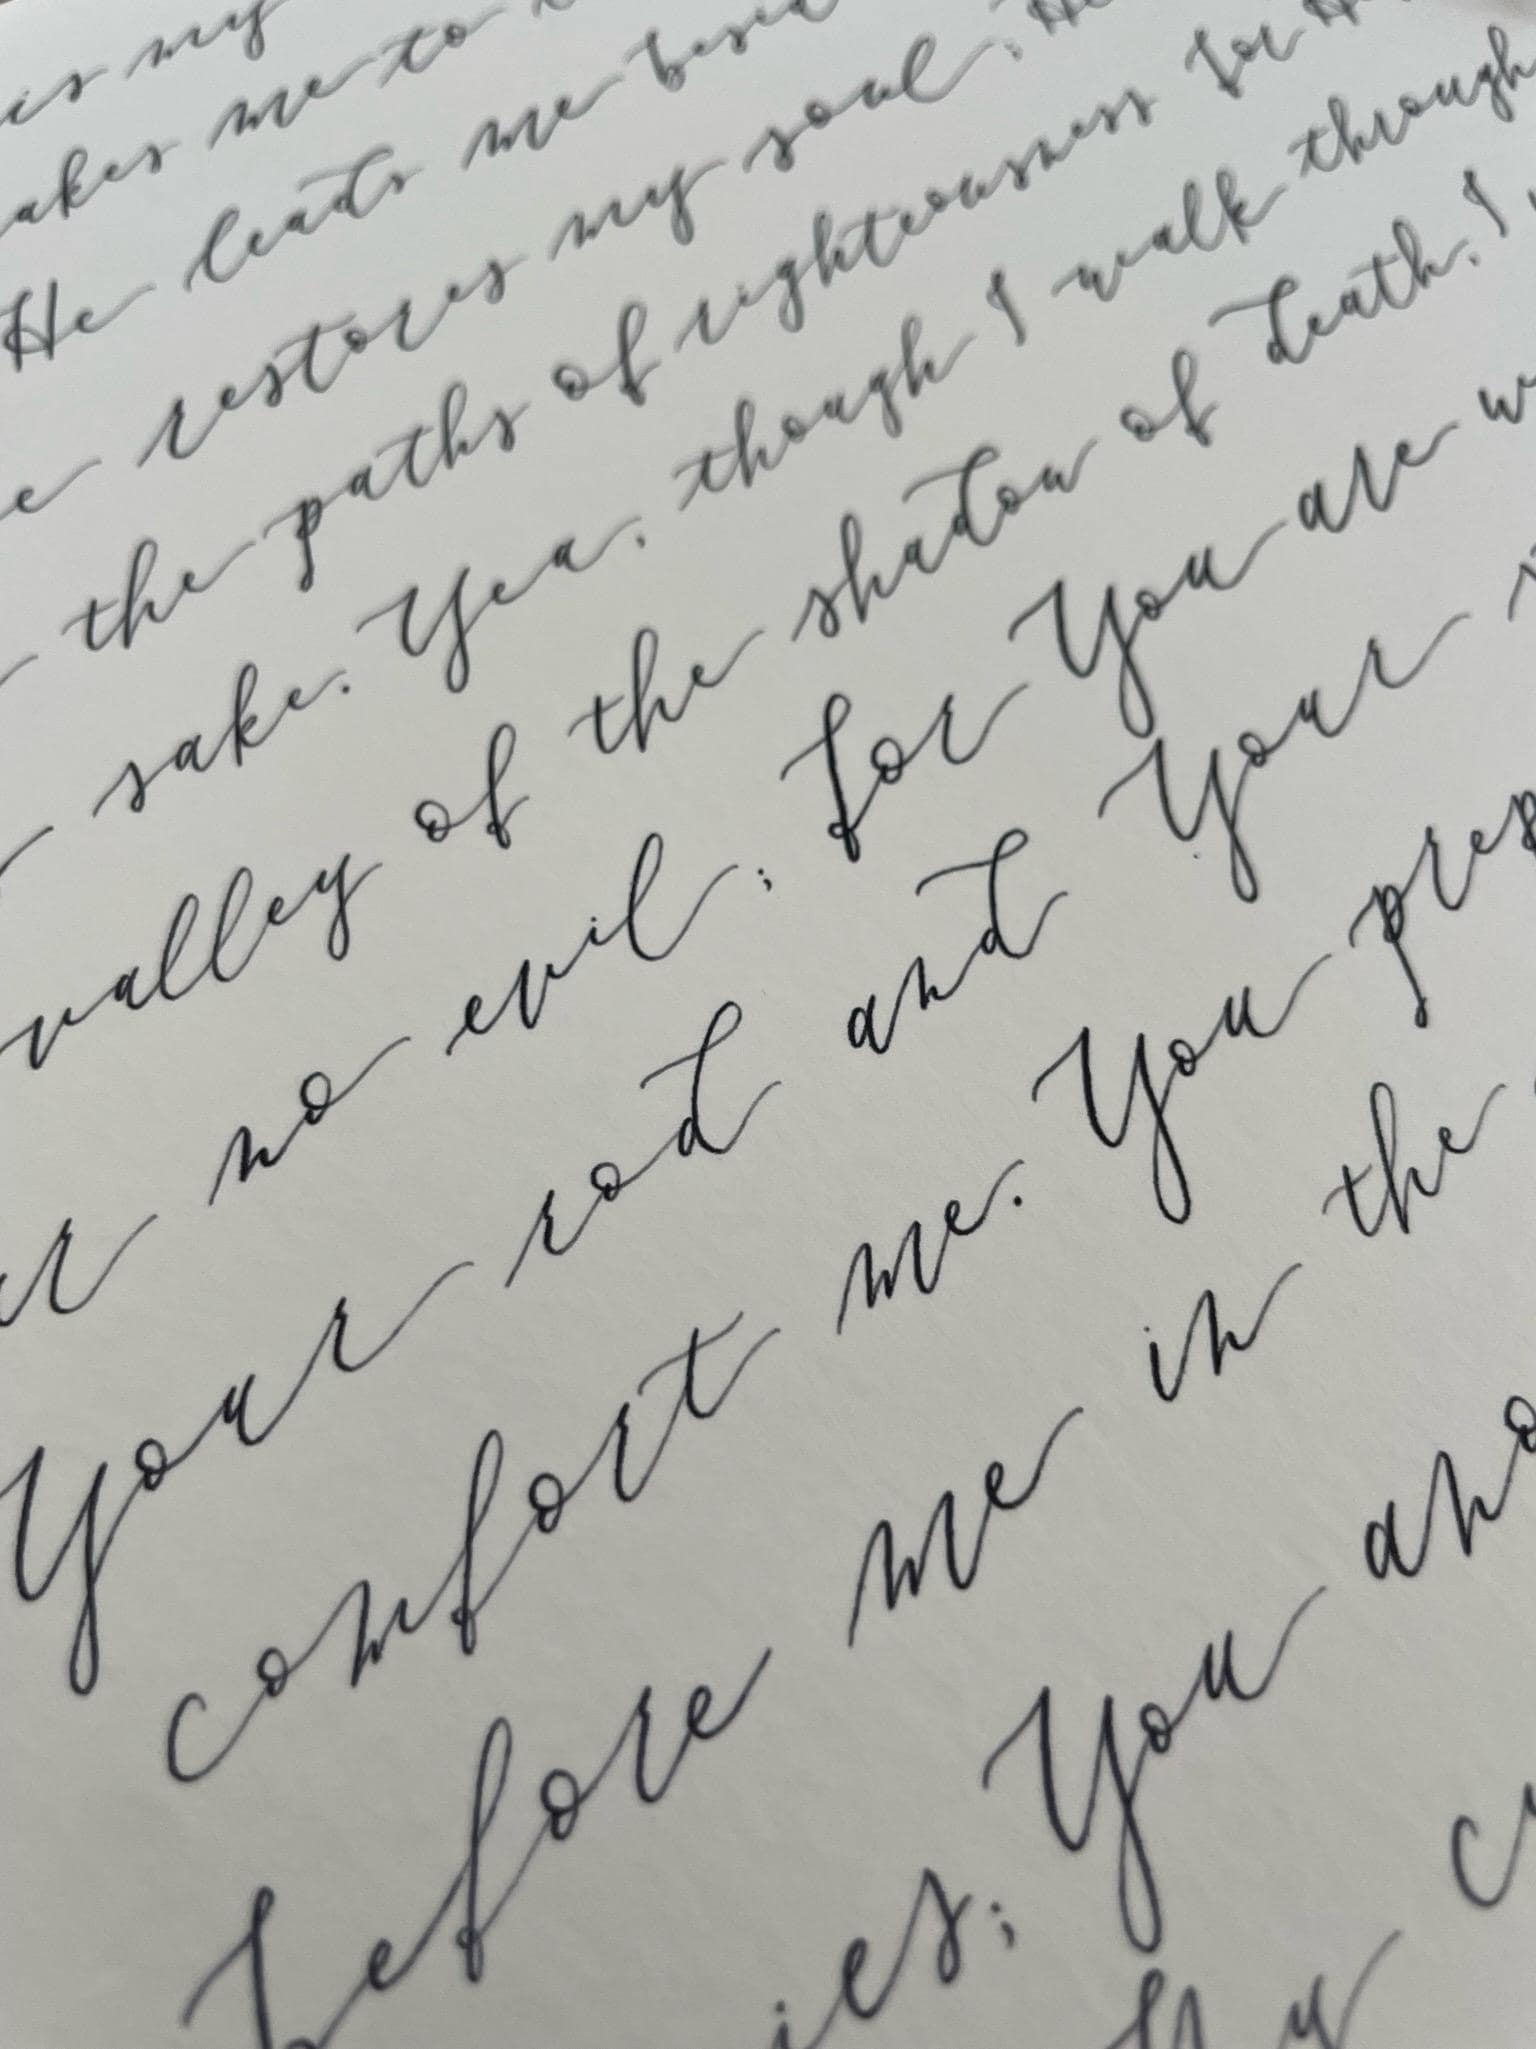 is my
makes me to
He leads me beside
restores my soul; He
the paths of righteousness for His
sake. Yea, though I walk through
valley of the shadow of death, I
no evil; for You are
Your rod and Your
comfort me. You
before me in the
You
my